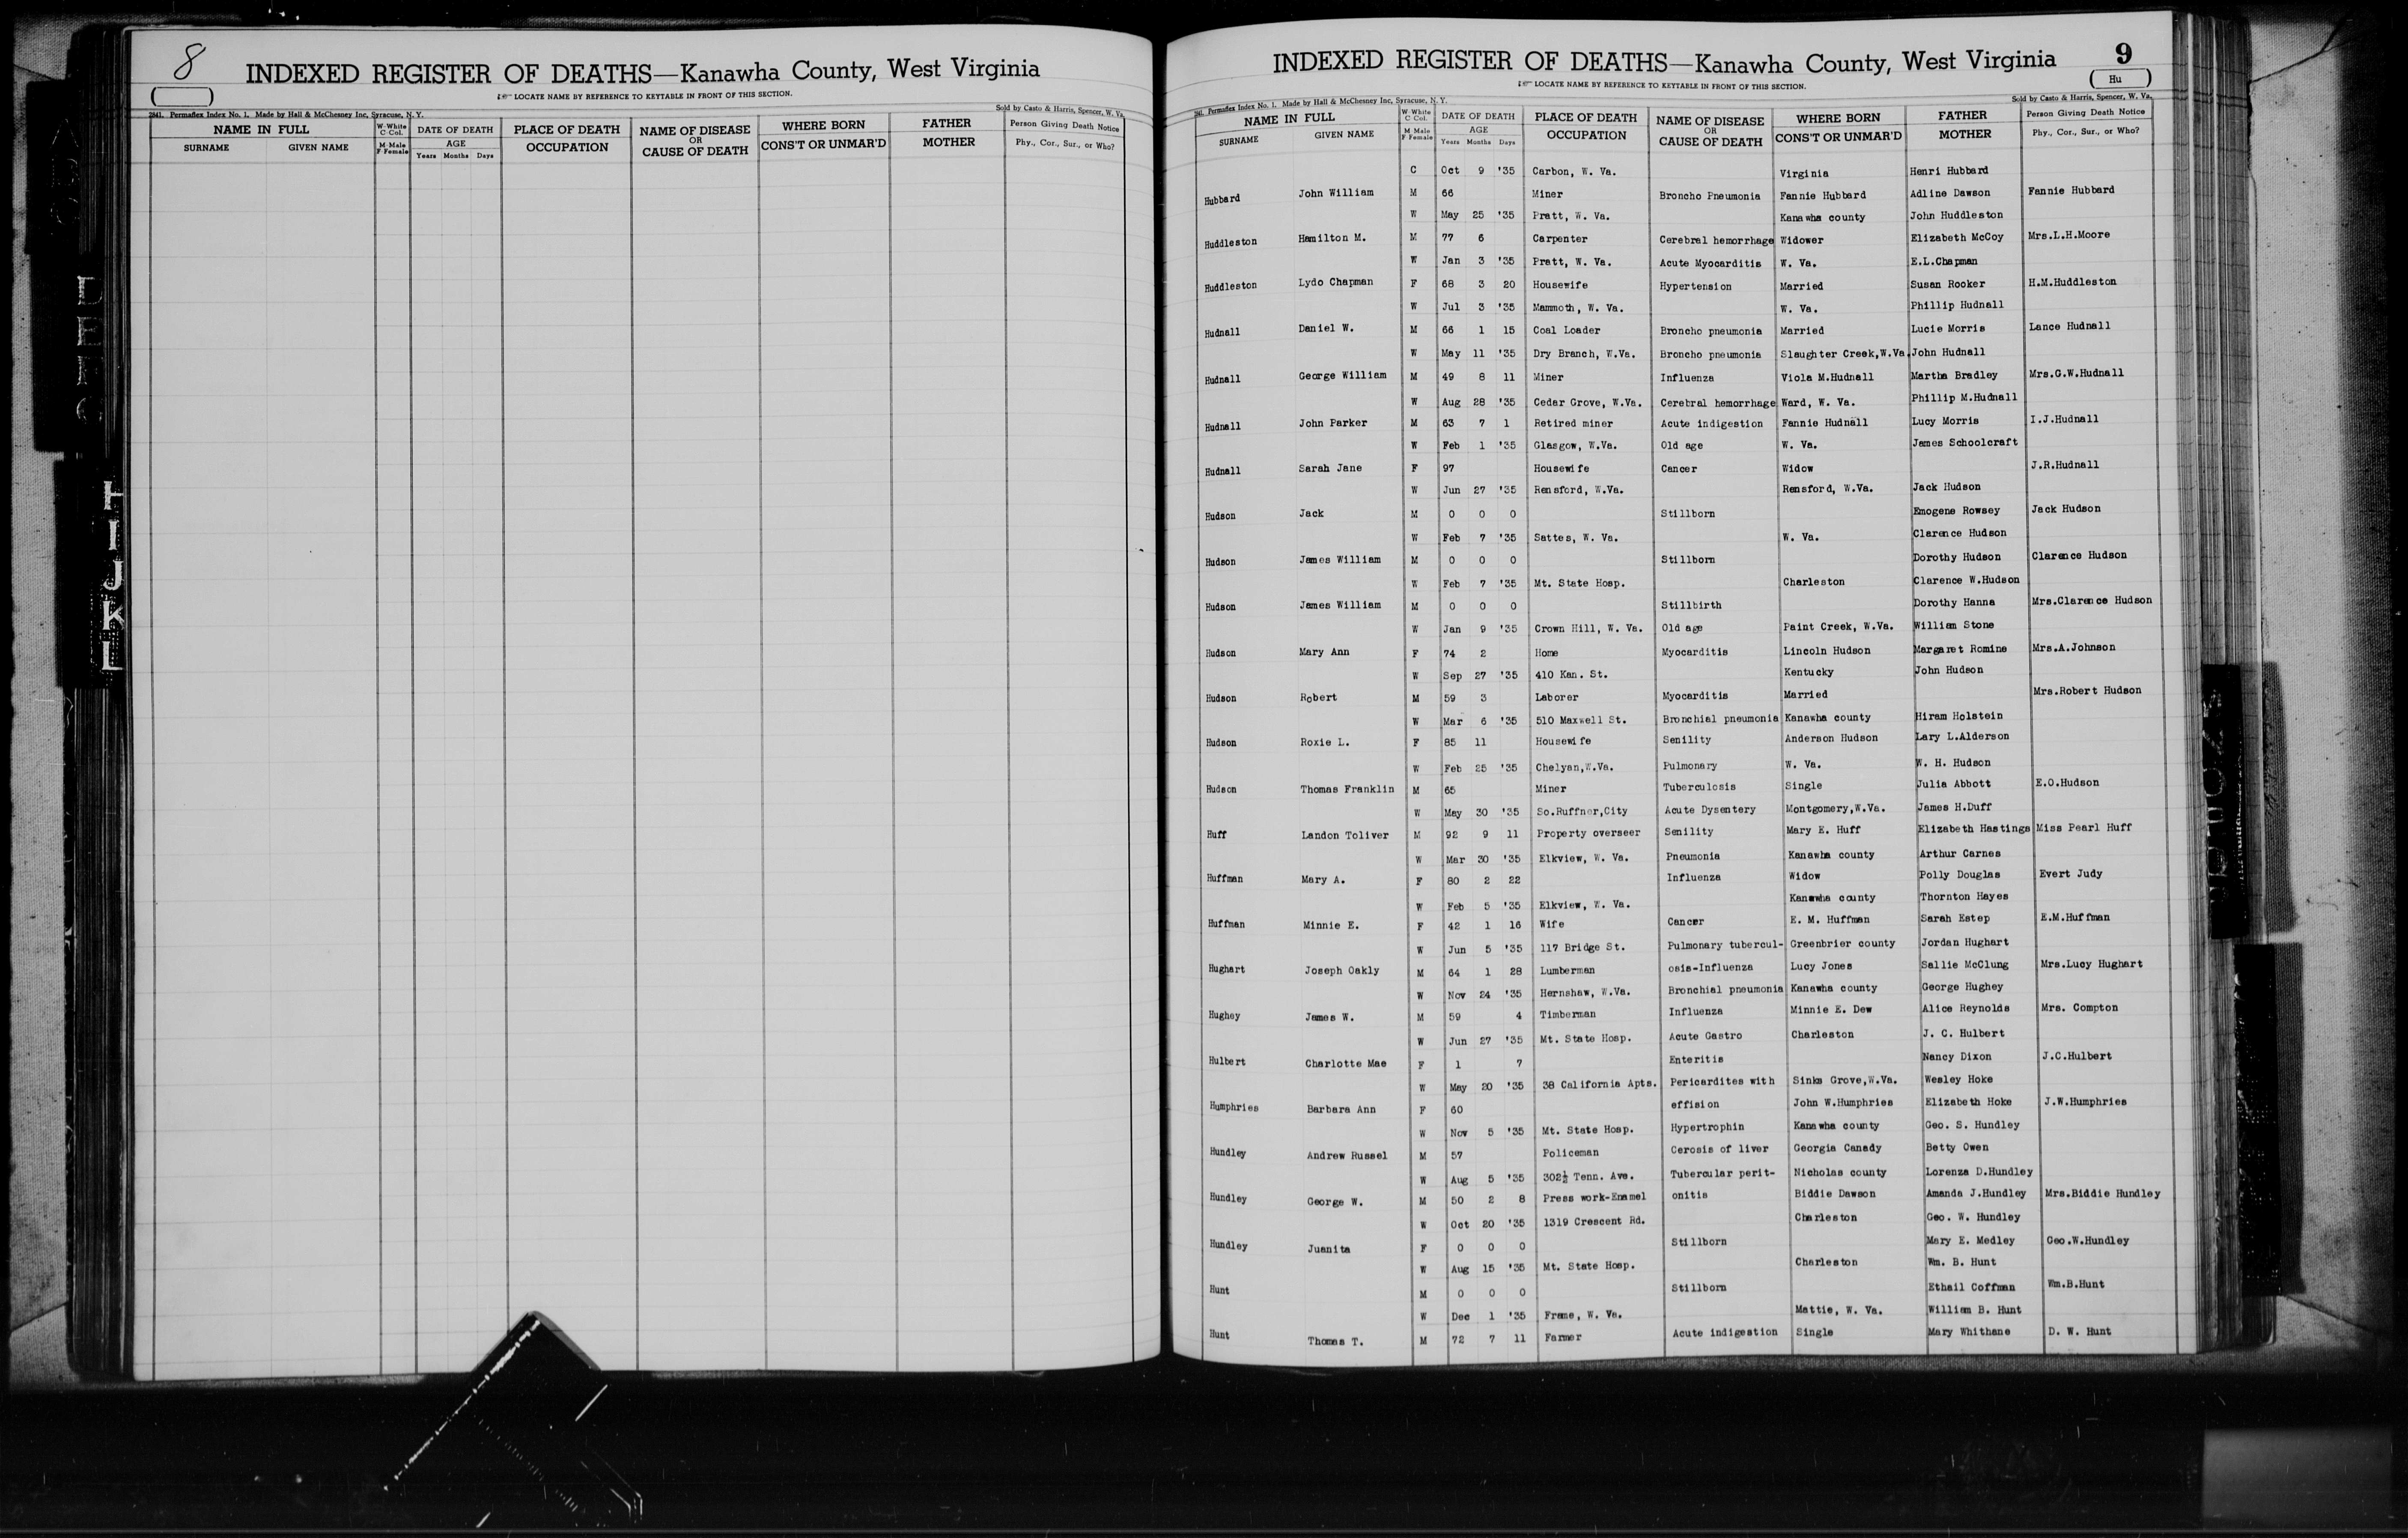 8
INDEXED REGISTER OF DEATHS—Kanawha County, West Virginia
LOCATE NAME BY REFERENCE TO KEYTABLE IN FRONT OF THIS SECTION.
2841. Permaflex Index No. 1. Made by Hall & McChesney Inc, Syracuse, N. Y. Sold by Casto & Harris, Spencer, W. Va.
NAME IN FULL W-White C Col. DATE OF DEATH PLACE OF DEATH NAME OF DISEASE OR CAUSE OF DEATH WHERE BORN FATHER Person Giving Death Notice
SURNAME GIVEN NAME M Male F Female AGE Years Months Days OCCUPATION CONS'T OR UNMAR'D MOTHER Phy., Cor., Sur., or Who?
H
I
J
K
L
INDEXED REGISTER OF DEATHS—Kanawha County, West Virginia 9
LOCATE NAME BY REFERENCE TO KEYTABLE IN FRONT OF THIS SECTION. ( Hu )
2841. Permaflex Index No. 1. Made by Hall & McChesney Inc, Syracuse, N. Y. Sold by Casto & Harris, Spencer, W. Va.
NAME IN FULL W-White C Col. DATE OF DEATH PLACE OF DEATH NAME OF DISEASE OR CAUSE OF DEATH WHERE BORN FATHER Person Giving Death Notice
SURNAME GIVEN NAME M Male F Female AGE Years Months Days OCCUPATION CONS'T OR UNMAR'D MOTHER Phy., Cor., Sur., or Who?
C Oct 9 '35 Carbon, W. Va. Virginia Henri Hubbard
Hubbard John William M 66 Miner Broncho Pneumonia Fannie Hubbard Adline Dawson Fannie Hubbard
W May 25 '35 Pratt, W. Va. Kanawha county John Huddleston
Huddleston Hamilton M. M 77 6 Carpenter Cerebral hemorrhage Widower Elizabeth McCoy Mrs.L.H.Moore
W Jan 3 '35 Pratt, W. Va. Acute Myocarditis W. Va. E.L.Chapman
Huddleston Lydo Chapman F 68 3 20 Housewife Hypertension Married Susan Rooker H.M.Huddleston
W Jul 3 '35 Mammoth, W. Va. W. Va. Phillip Hudnall
Hudnall Daniel W. M 66 1 15 Coal Loader Broncho pneumonia Married Lucie Morris Lance Hudnall
W May 11 '35 Dry Branch, W.Va. Broncho pneumonia Slaughter Creek,W.Va. John Hudnall
Hudnall George William M 49 8 11 Miner Influenza Viola M.Hudnall Martha Bradley Mrs.G.W.Hudnall
W Aug 28 '35 Cedar Grove, W.Va. Cerebral hemorrhage Ward, W. Va. Phillip M.Hudnall
Hudnall John Parker M 63 7 1 Retired miner Acute indigestion Fannie Hudnall Lucy Morris I.J.Hudnall
W Feb 1 '35 Glasgow, W.Va. Old age W. Va. James Schoolcraft
Hudnall Sarah Jane F 97 Housewife Cancer Widow J.R.Hudnall
W Jun 27 '35 Rensford, W.Va. Rensford, W.Va. Jack Hudson
Hudson Jack M 0 0 0 Stillborn Emogene Rowsey Jack Hudson
W Feb 7 '35 Sattes, W. Va. W. Va. Clarence Hudson
Hudson James William M 0 0 0 Stillborn Dorothy Hudson Clarence Hudson
W Feb 7 '35 Mt. State Hosp. Charleston Clarence W.Hudson
Hudson James William M 0 0 0 Stillbirth Dorothy Hanna Mrs.Clarence Hudson
W Jan 9 '35 Crown Hill, W. Va. Old age Paint Creek, W.Va. William Stone
Hudson Mary Ann F 74 2 Home Myocarditis Lincoln Hudson Margaret Romine Mrs.A.Johnson
W Sep 27 '35 410 Kan. St. Kentucky John Hudson
Hudson Robert M 59 3 Laborer Myocarditis Married Mrs.Robert Hudson
W Mar 6 '35 510 Maxwell St. Bronchial pneumonia Kanawha county Hiram Holstein
Hudson Roxie L. F 85 11 Housewife Senility Anderson Hudson Lary L.Alderson
W Feb 25 '35 Chelyan,W.Va. Pulmonary W. Va. W. H. Hudson
Hudson Thomas Franklin M 65 Miner Tuberculosis Single Julia Abbott E.O.Hudson
W May 30 '35 So.Ruffner,City Acute Dysentery Montgomery,W.Va. James H.Duff
Huff Landon Toliver M 92 9 11 Property overseer Senility Mary E. Huff Elizabeth Hastings Miss Pearl Huff
W Mar 30 '35 Elkview, W. Va. Pneumonia Kanawha county Arthur Carnes
Huffman Mary A. F 80 2 22 Influenza Widow Polly Douglas Evert Judy
W Feb 5 '35 Elkview, W. Va. Kanawha county Thornton Hayes
Huffman Minnie E. F 42 1 16 Wife Cancer E. M. Huffman Sarah Estep E.M.Huffman
W Jun 5 '35 117 Bridge St. Pulmonary tubercul- Greenbrier county Jordan Hughart
Hughart Joseph Oakly M 64 1 28 Lumberman osis-Influenza Lucy Jones Sallie McClung Mrs.Lucy Hughart
W Nov 24 '35 Hernshaw, W.Va. Bronchial pneumonia Kanawha county George Hughey
Hughey James W. M 59 4 Timberman Influenza Minnie E. Dew Alice Reynolds Mrs. Compton
W Jun 27 '35 Mt. State Hosp. Acute Gastro Charleston J. C. Hulbert
Hulbert Charlotte Mae F 1 7 Enteritis Nancy Dixon J.C.Hulbert
W May 20 '35 38 California Apts. Pericardites with Sinks Grove,W.Va. Wesley Hoke
Humphries Barbara Ann F 60 effision John W.Humphries Elizabeth Hoke J.W.Humphries
W Nov 5 '35 Mt. State Hosp. Hypertrophin Kanawha county Geo. S. Hundley
Hundley Andrew Russel M 57 Policeman Cerosis of liver Georgia Canady Betty Owen
W Aug 5 '35 302½ Tenn. Ave. Tubercular perit- Nicholas county Lorenza D.Hundley
Hundley George W. M 50 2 8 Press work-Enamel onitis Biddie Dawson Amanda J.Hundley Mrs.Biddie Hundley
W Oct 20 '35 1319 Crescent Rd. Charleston Geo. W. Hundley
Hundley Juanita F 0 0 0 Stillborn Mary E. Medley Geo.W.Hundley
W Aug 15 '35 Mt. State Hosp. Charleston Wm. B. Hunt
Hunt M 0 0 0 Stillborn Ethail Coffman Wm.B.Hunt
W Dec 1 '35 Frame, W. Va. Mattie, W. Va. William B. Hunt
Hunt Thomas T. M 72 7 11 Farmer Acute indigestion Single Mary Whithane D. W. Hunt